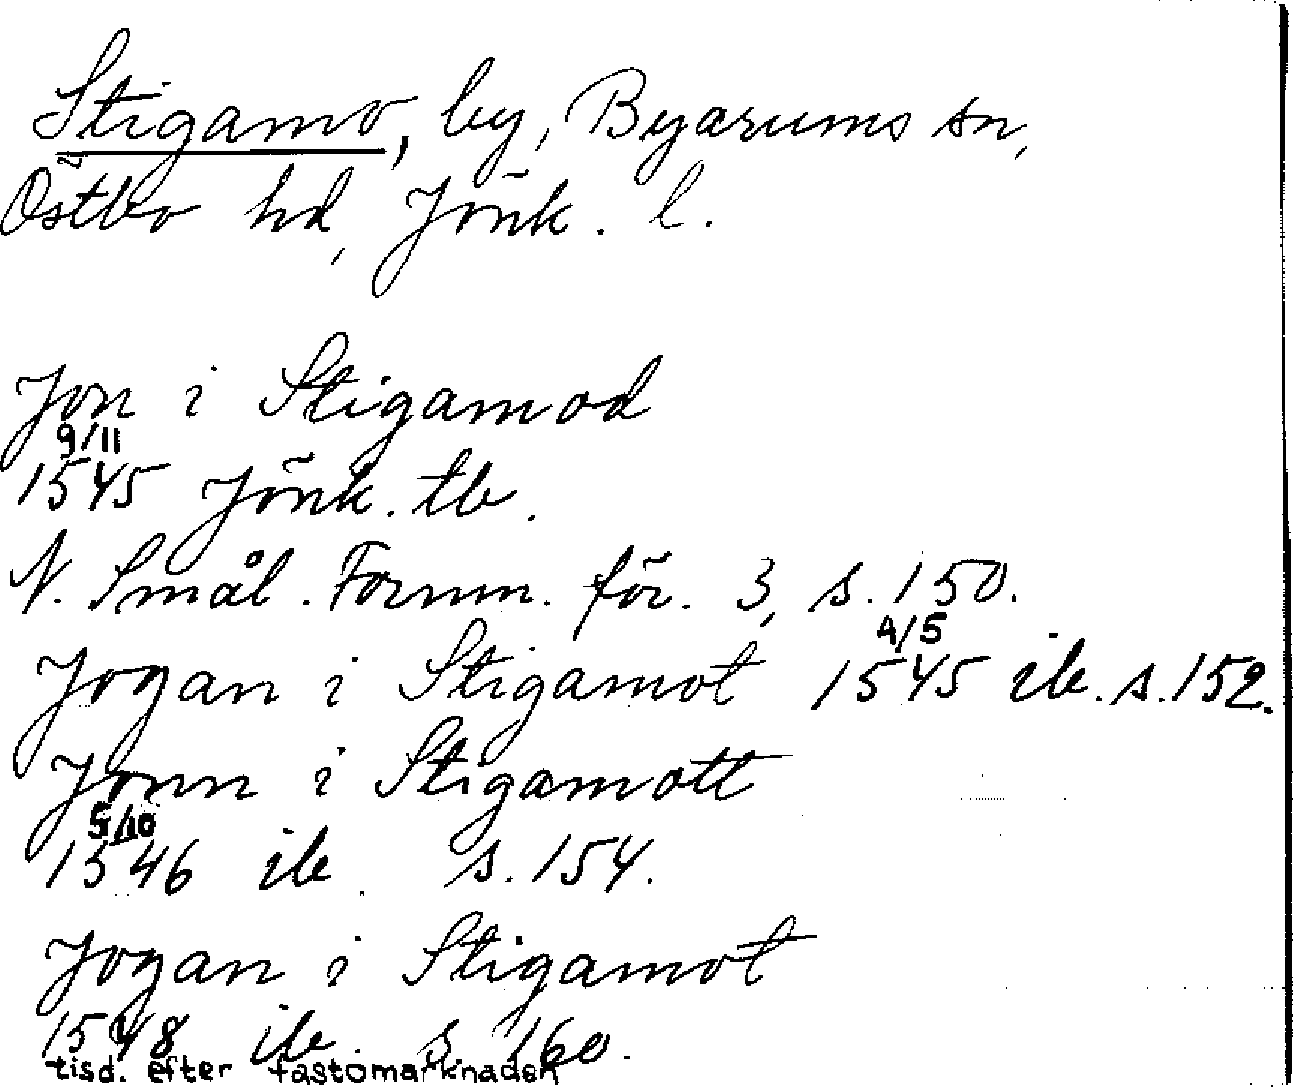 Stigamo, by, Byarums sn,
Östbo hd, Jönk. l.
Jon i Stigamod
9/11
1545 Jönk. tb.
N. Smål. Fornm. för. 3, s. 150.
4/5
Jogan i Stigamot 1545 ib. s. 152.
Jonn i Stigamott
5/10
1546 ib. s. 154.
Jogan i Stigamot
1548 ib. s. 160.
tisd. efter fastomarknaden